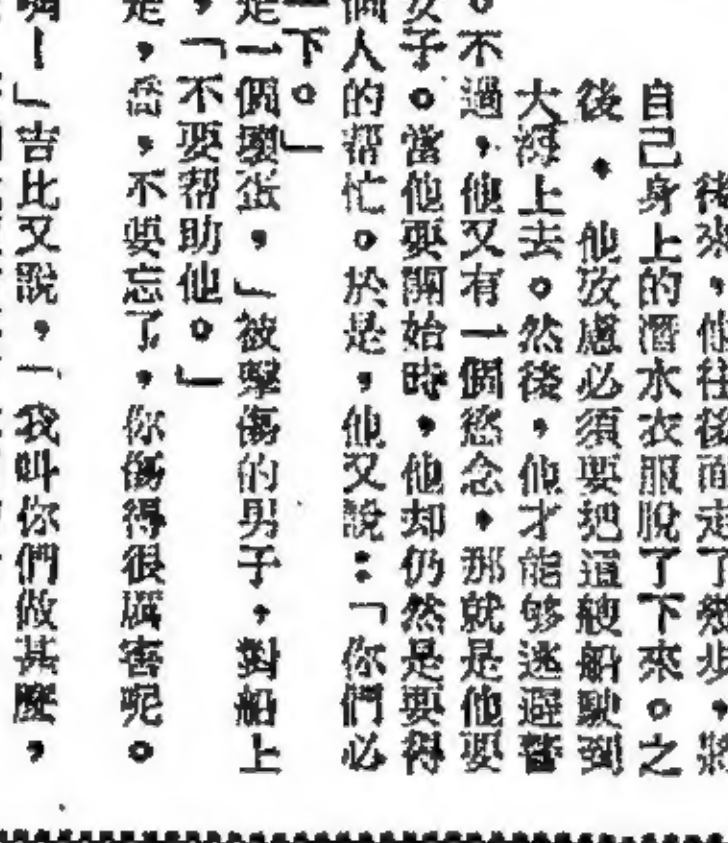 後來，他往後面走了幾步，將
自己身上的潛水衣服脫了下來。之
後，他攷慮必須要把這艘船駛到
大海上去。然後，他才能够逃避警
。不過，他又有一個慾念，那就是他要
女子。當他要開始時，他却仍然是要得
個人的幫忙。於是，他又說：「你們必
一下。」
是一個壞蛋，」被擊傷的男子，對船上
，「不要帮助他。」
是，喬，不要忘了，你傷得很厲害呢。
啊！」吉比又說，「我叫你們做甚麼，